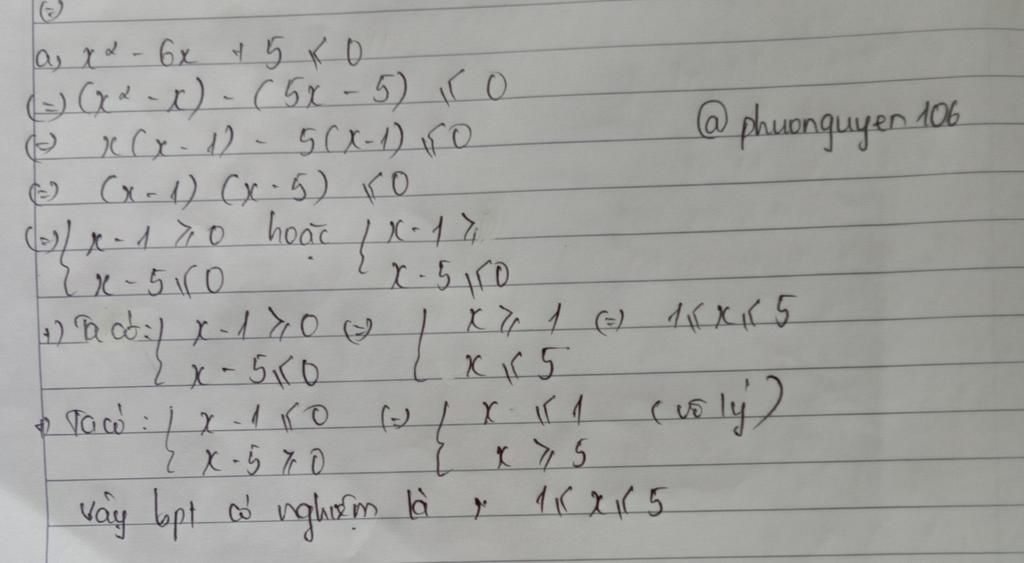 (=)
a, x² - 6x + 5 ≤ 0
(=) (x² - x) - (5x - 5) ≤ 0
(=) x(x - 1) - 5(x - 1) ≤ 0
@phuonguyen106
(=) (x - 1) (x - 5) ≤ 0
(=) { x - 1 ≥ 0 hoặc { x - 1 ≥
x - 5 ≤ 0 x - 5 ≤ 0
+) Ta có: { x - 1 ≥ 0 (=) { x ≥ 1 (=) 1 ≤ x ≤ 5
x - 5 ≤ 0 x ≤ 5
+) Ta có: { x - 1 ≤ 0 (=) { x ≤ 1 (vô lý)
x - 5 ≥ 0 x ≥ 5
vậy bpt có nghiệm là 1 ≤ x ≤ 5